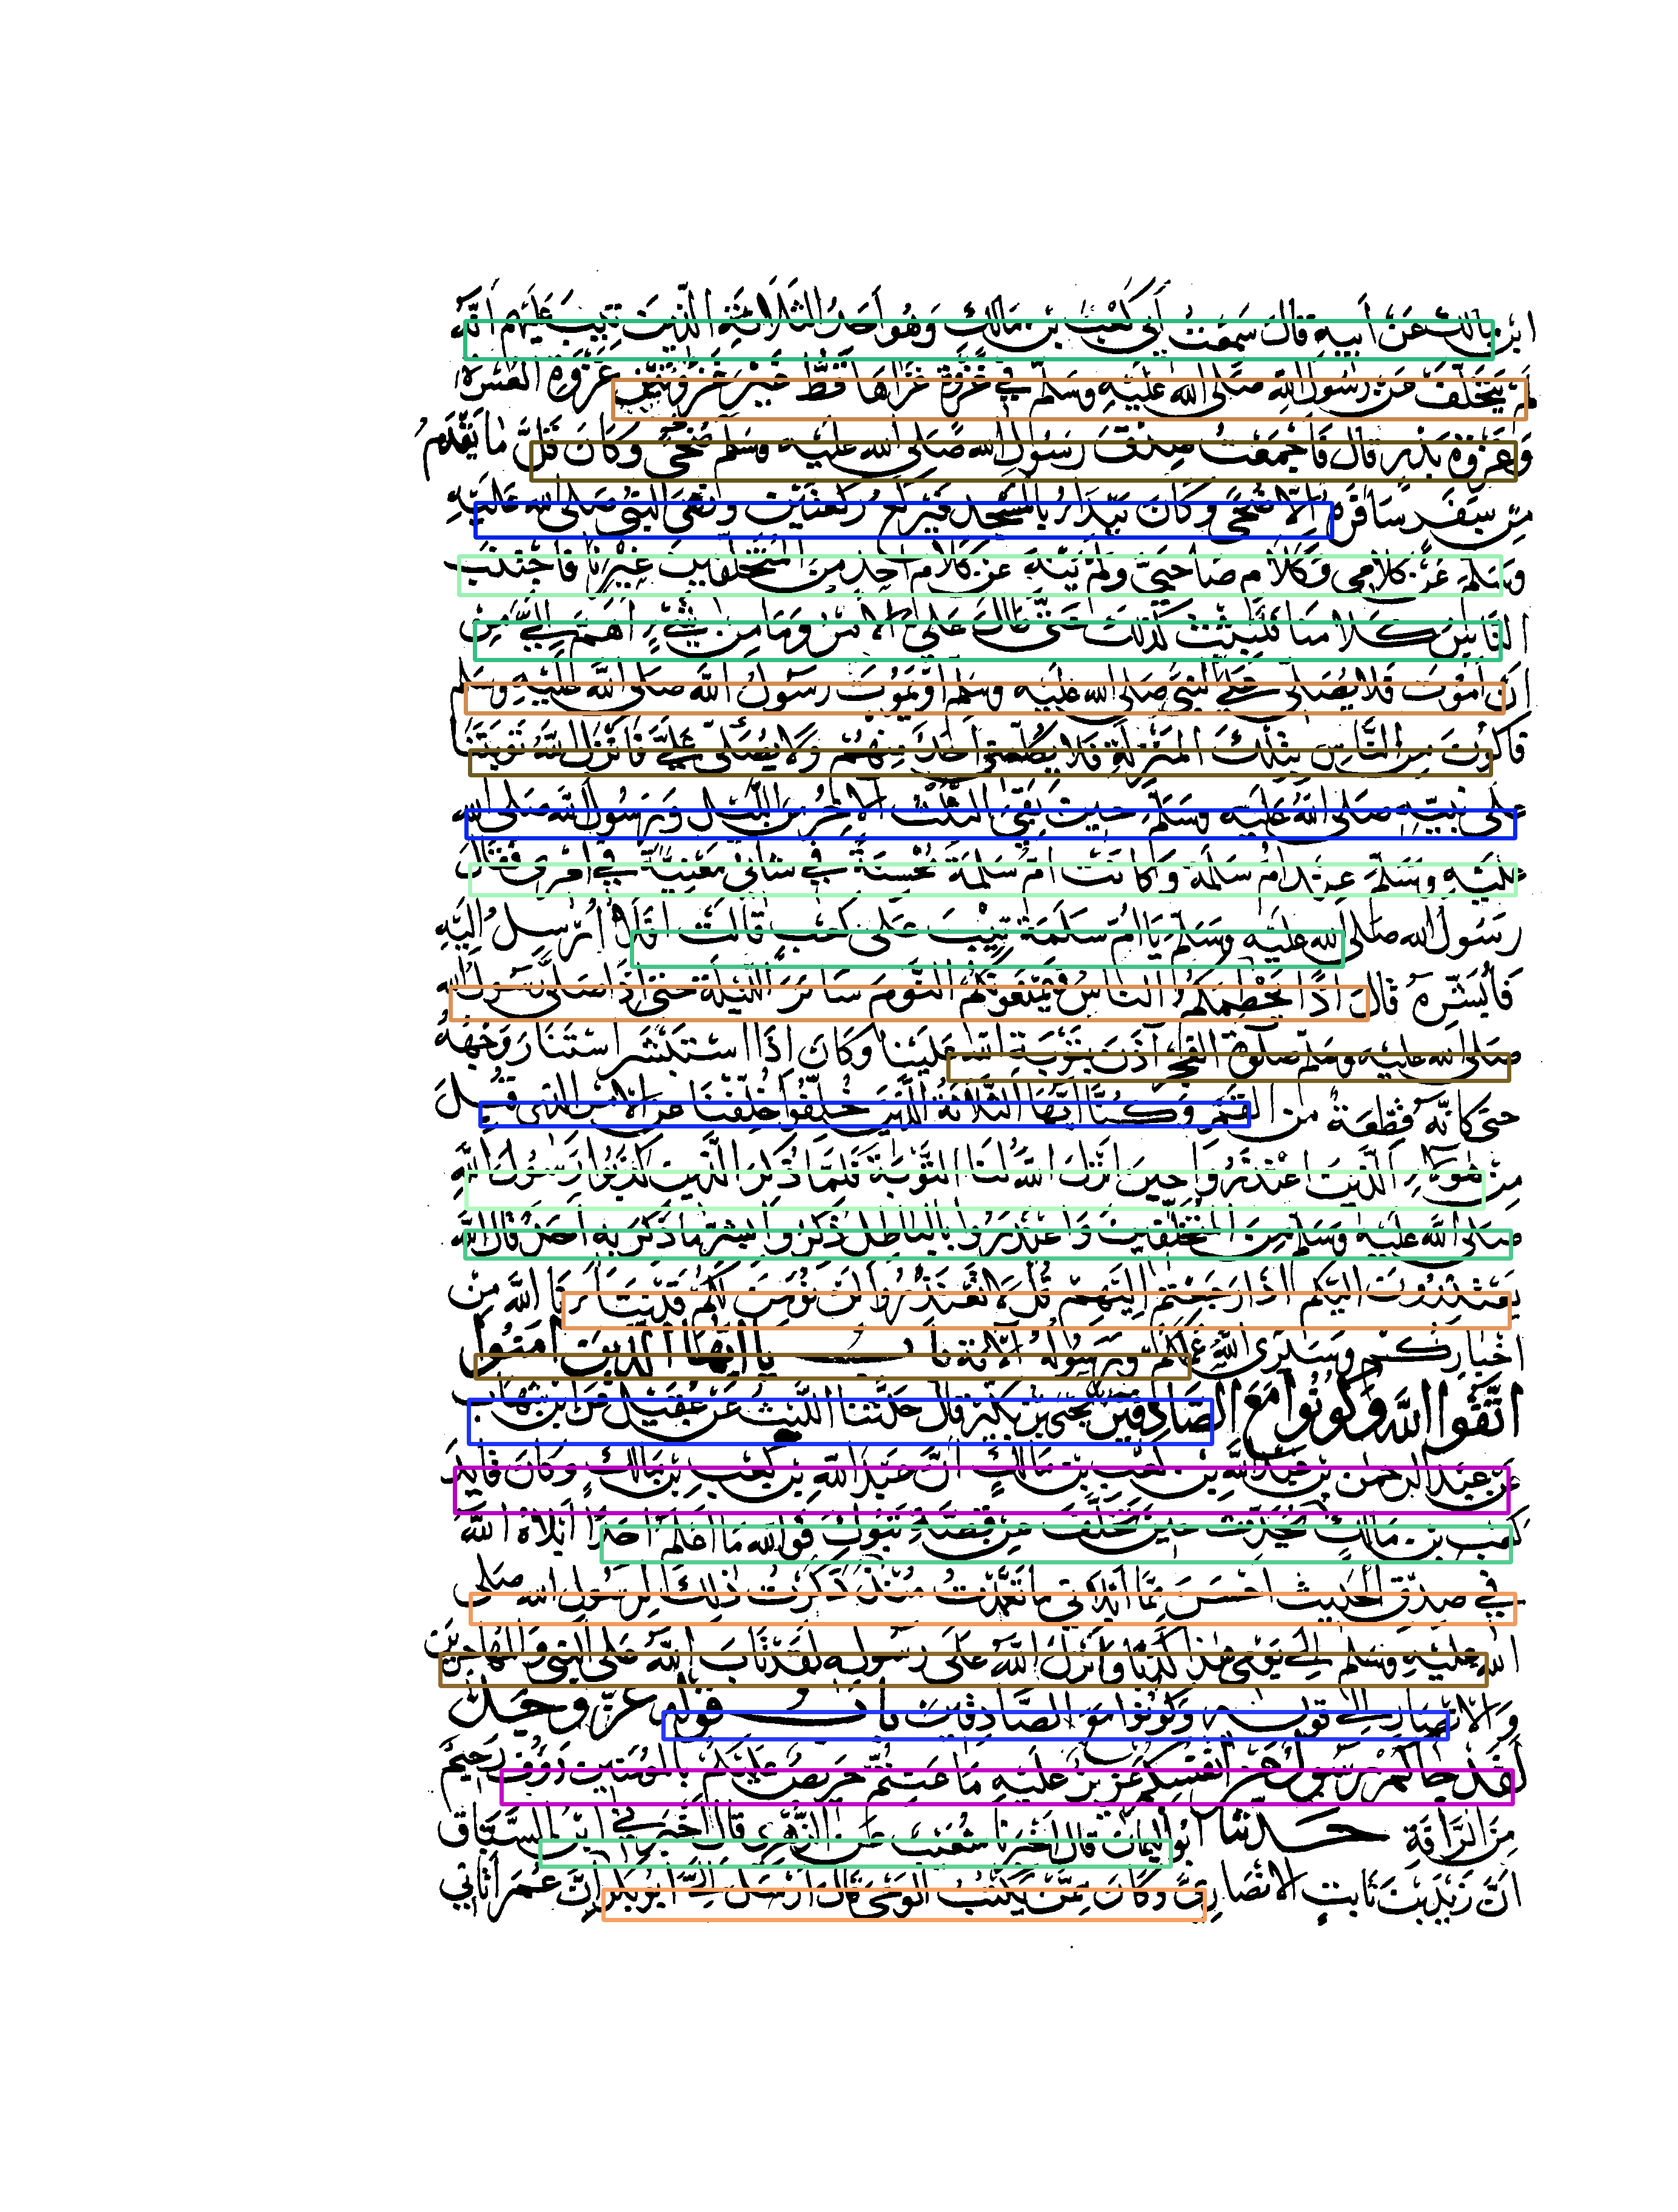 ابن مالك عن أبيه قال سمعت أبي كعب بن مالك وهو أحد الثلاثة الذين تيب عليهم أنه
لم يتخلف عن رسول الله صلى الله عليه وسلم في غزوة غزاها قط غير غزوتين غزوة العسرة
وغزوة بدر قال فأجمعت صدق رسول الله صلى الله عليه وسلم ضحى وكان قل ما يقدم
من سفر سافره إلا ضحى وكان يبدأ بالمسجد فيركع ركعتين ونهى النبي صلى الله عليه
وسلم عن كلامي وكلام صاحبي ولم ينه عن كلام أحد من المتخلفين غيرنا فاجتنب
الناس كلامنا فلبثت كذلك حتى طال علي الأمر وما من شيء أهم إلي من
ان أموت فلا يصلي علي النبي صلى الله عليه وسلم أو يموت رسول الله صلى الله عليه وسلم
فاكون من الناس بتلك المنزلة فلا يكلمني أحد منهم ولا يصلى علي فانزل الله توبتنا
على نبيه صلى الله عليه وسلم حين بقي الثلث الآخر من الليل ورسول الله صلى الله
عليه وسلم عند أم سلمة وكانت أم سلمة محسنة في شاني معنية في أمري فقال
رسول الله صلى الله عليه وسلم يا أم سلمة تيب على كعب قالت أفلا أرسل إليه
فأبشره قال اذا يحطمكم الناس فيمنعونكم النوم سائر الليلة حتى إذا صلى رسول الله
صلى الله عليه وسلم صلوة الفجر آذن بتوبة الله علينا وكان اذا استبشر استنار وجهه
حتى كأنه قطعة من القمر وكنا ايها الثلاثة الذين خلفوا خلفنا عن الأمر الذي قبل
من هؤلاء الذين اعتذروا حين انزل الله لنا التوبة فلما ذكر الذين كذبوا رسول الله
صلى الله عليه وسلم من المتخلفين واعتذروا بالباطل ذكروا بشر ما ذكر به أحد قال الله
يعتذرون اليكم اذا رجعتم اليهم قل لا تعتذروا لن نؤمن لكم قد نبأنا الله من
اخباركم وسيرى الله عملكم ورسوله الآية باب يا ايها الذين امنوا
اتقوا الله وكونوا مع الصادقين يحيى بن بكير قال حدثنا الليث عن عقيل عن ابن شهاب
عن عبد الرحمن بن عبد الله بن كعب بن مالك أن عبد الله بن كعب بن مالك وكان قايد
كعب بن مالك يحدث حين تخلف عن قصة تبوك فوالله ما اعلم احدا ابلاه الله
في صدق الحديث احسن مما ابلاني ما تعمدت منذ ذكرت ذلك لرسول الله صلى
الله عليه وسلم إلى يومي هذا كذبا وانزل الله على رسوله لقد تاب الله على النبي والمهاجرين
والانصار إلى قوله وكونوا مع الصادقين باب قوله عز وجل
لقد جاكم رسول من انفسكم عزيز عليه ما عنتم حريص عليكم بالمؤمنين رؤف رحيم
من الرأفة حدثنا ابو اليمان قال اخبرنا شعيب عن الزهري قال اخبرني ابن السباق
ان زيد بن ثابت الانصاري وكان ممن يكتب الوحي قال ارسل إلي ابو بكر إن عمر أتاني